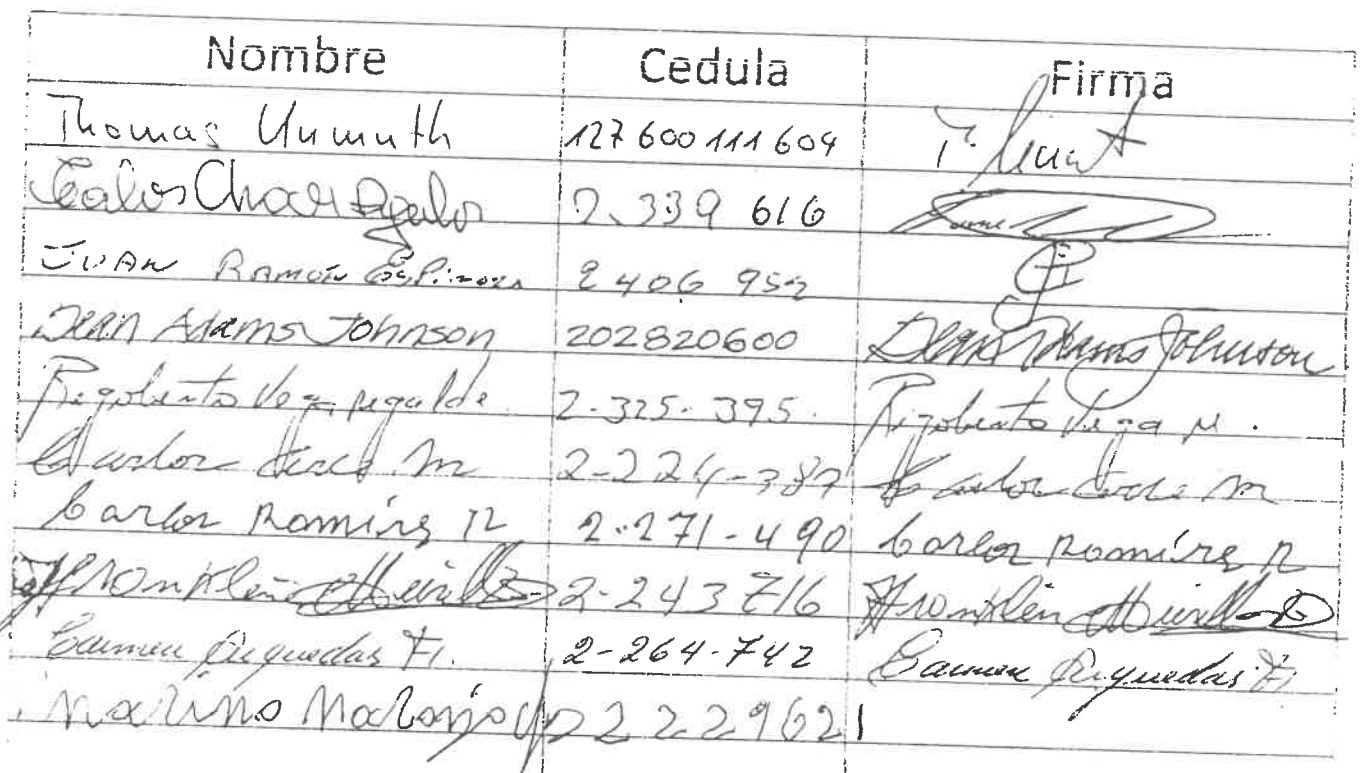 Nombre Cedula Firma
Thomas Unmuth 127600111604
Carlos Chaves 2.339 616
JUAN RAMÓN Espinoza 2 406 952
Dean Adams Johnson 202820600 Dean Adams Johnson
Rigoberto Vega 2-325-395. Rigoberto Vega M.
Carlos M 2-224-387 Carlos M
Carlos Ramírez R 2-271-490 Carlos Ramírez R
Franklin Murillo 2-243 716 Franklin Murillo
Carmen Arguedas 2-264-742 Carmen Arguedas
Marino Naranjo 2 2 2 9 621